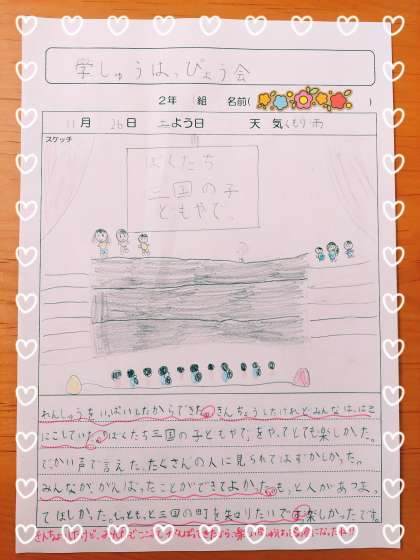 学しゅうはっぴょう会
2年 組 名前( )
11月 26日 土よう日 天気 くもり雨
スケッチ
ぼくたち
三国の子
ともやで。
れんしゅうをいっぱいしたからできた。きんちょうしたけれどみんなは、にこ
にこしていた。「ぼくたち三国の子ともやで」をやってとても楽しかった。
でっかい声で言えた。たくさんの人に見られてはずかしかった。
みんなが、がんばったことができてよかた。もっと人があつまっ
てほしかった。もっともっと三国の町を知りたいです。楽しかったです。